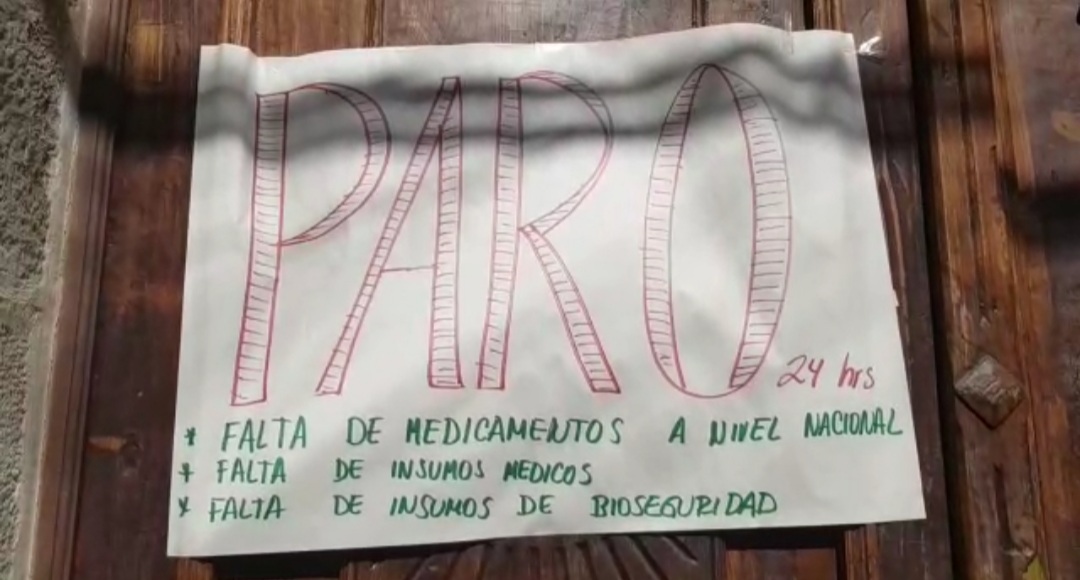 PARO
24 hrs
* FALTA DE MEDICAMENTOS A NIVEL NACIONAL
* FALTA DE INSUMOS MEDICOS
* FALTA DE INSUMOS DE BIOSEGURIDAD